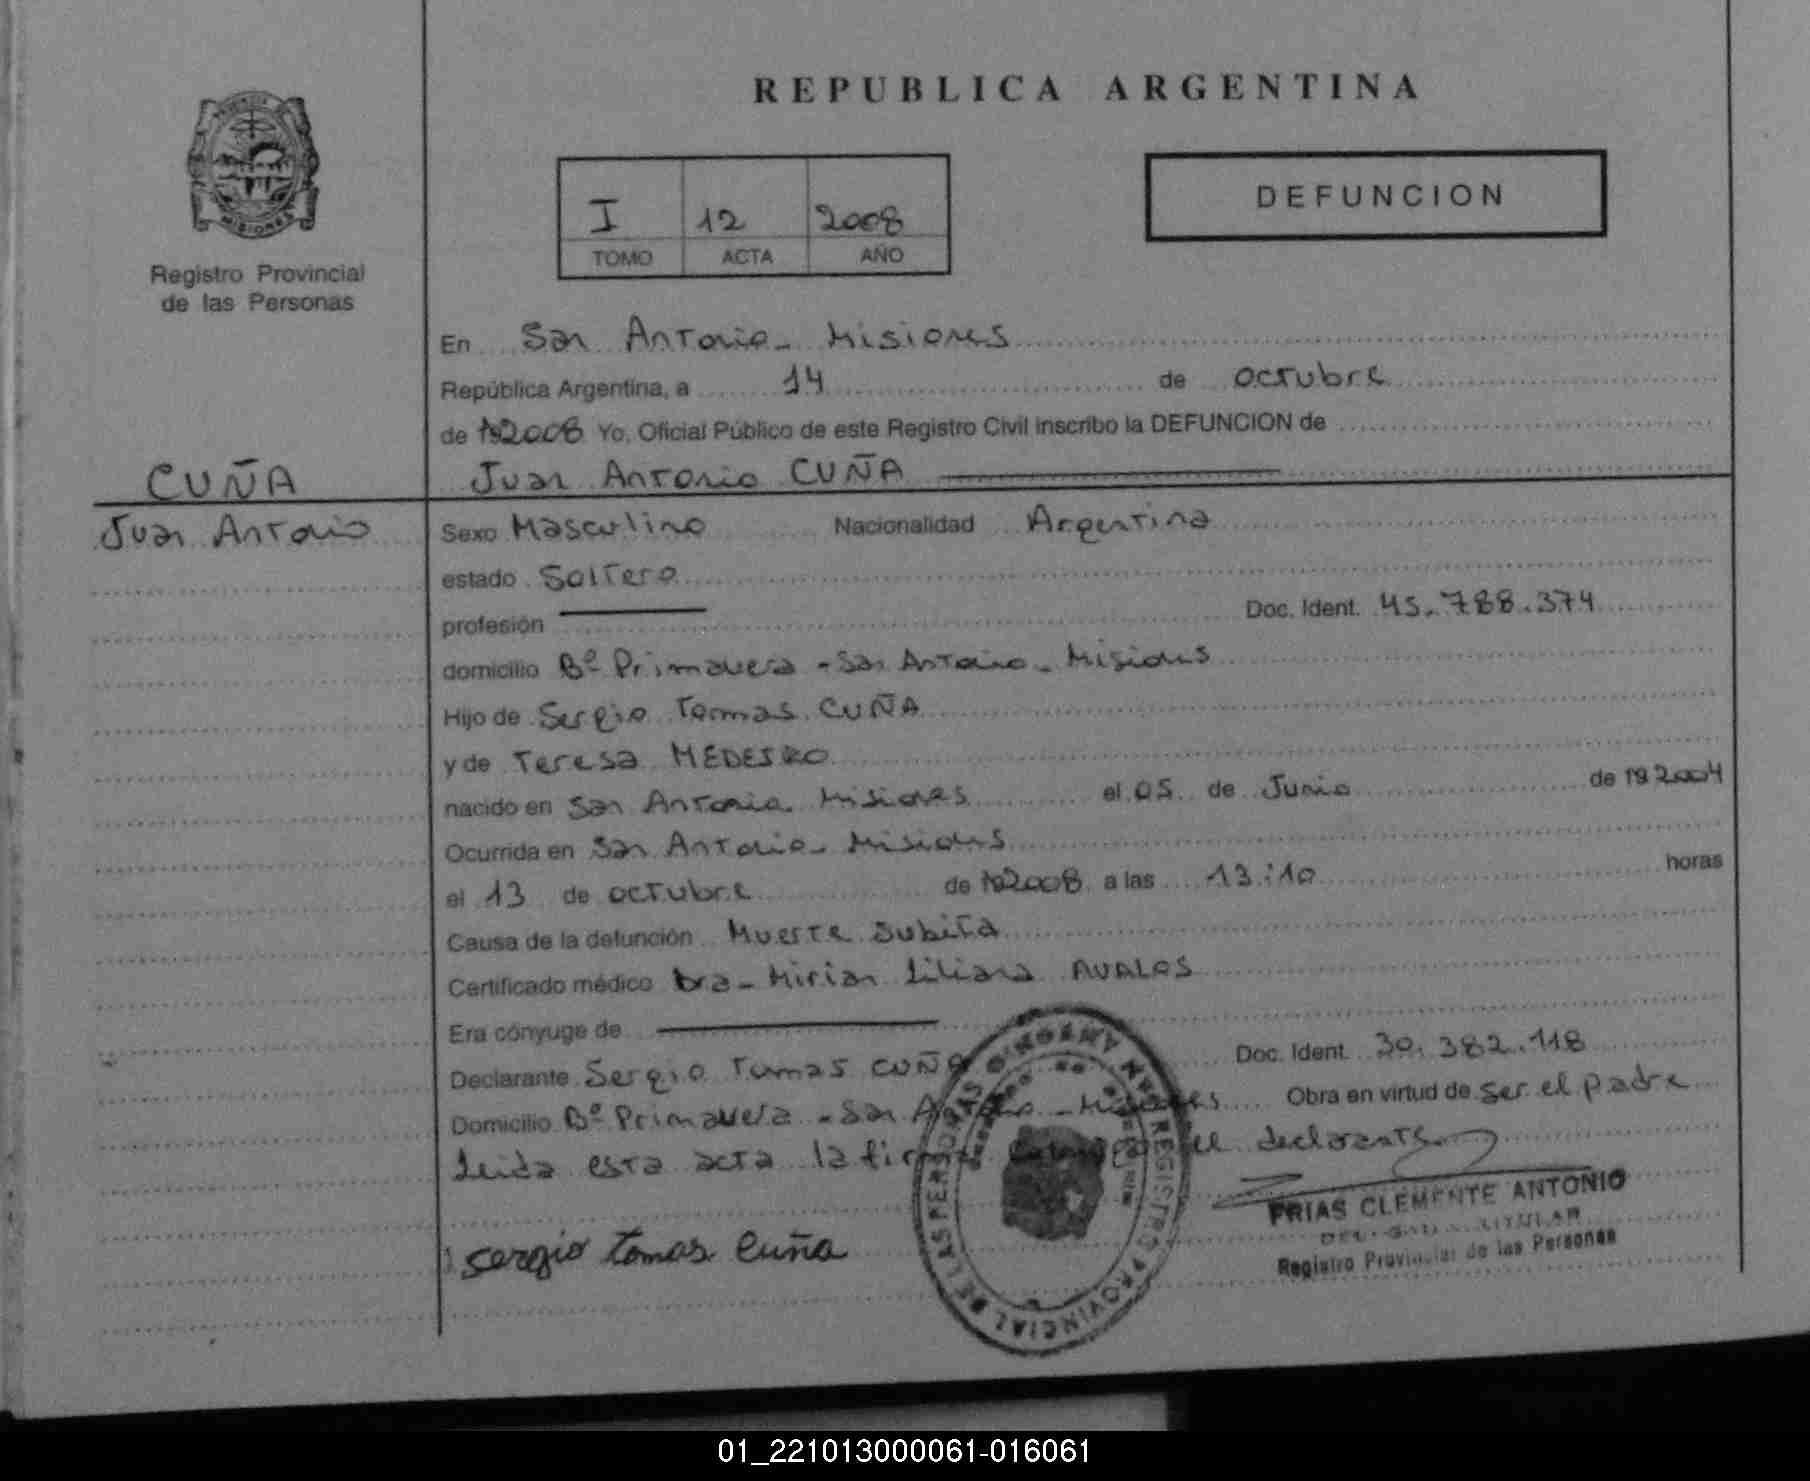 REPUBLICA ARGENTINA
MISIONES
Registro Provincial
de las Personas
I 12 2008
TOMO ACTA AÑO
DEFUNCION
En San Antonio - Misiones
República Argentina, a 14 de octubre
de 192008 Yo, Oficial Público de este Registro Civil inscribo la DEFUNCION de
CUÑA
Juan Antonio
Juan Antonio CUÑA
Sexo Masculino Nacionalidad Argentina
estado Soltero
profesión Doc. Ident. 45.788.374
domicilio Bº Primavera - San Antonio - Misiones
Hijo de Sergio Tomas CUÑA
y de Teresa MEDESRO
nacido en San Antonio Misiones el 05 de Junio de 19 2004
Ocurrida en San Antonio - Misiones
el 13 de octubre de 192008 a las 13:10 horas
Causa de la defunción Muerte Subita
Certificado médico Dra - Mirian Liliana AVALOS
Era cónyuge de
Declarante Sergio Tomas CUÑA Doc. Ident. 30.382.118
Domicilio Bº Primavera - San Antonio - Misiones Obra en virtud de ser el padre
Leida esta acta la firma el declarante
sergio tomas Cuña
REGISTRO PROVINCIAL DE LAS PERSONAS
FRIAS CLEMENTE ANTONIO
TITULAR
Registro Provincial de las Personas
01_221013000061-016061